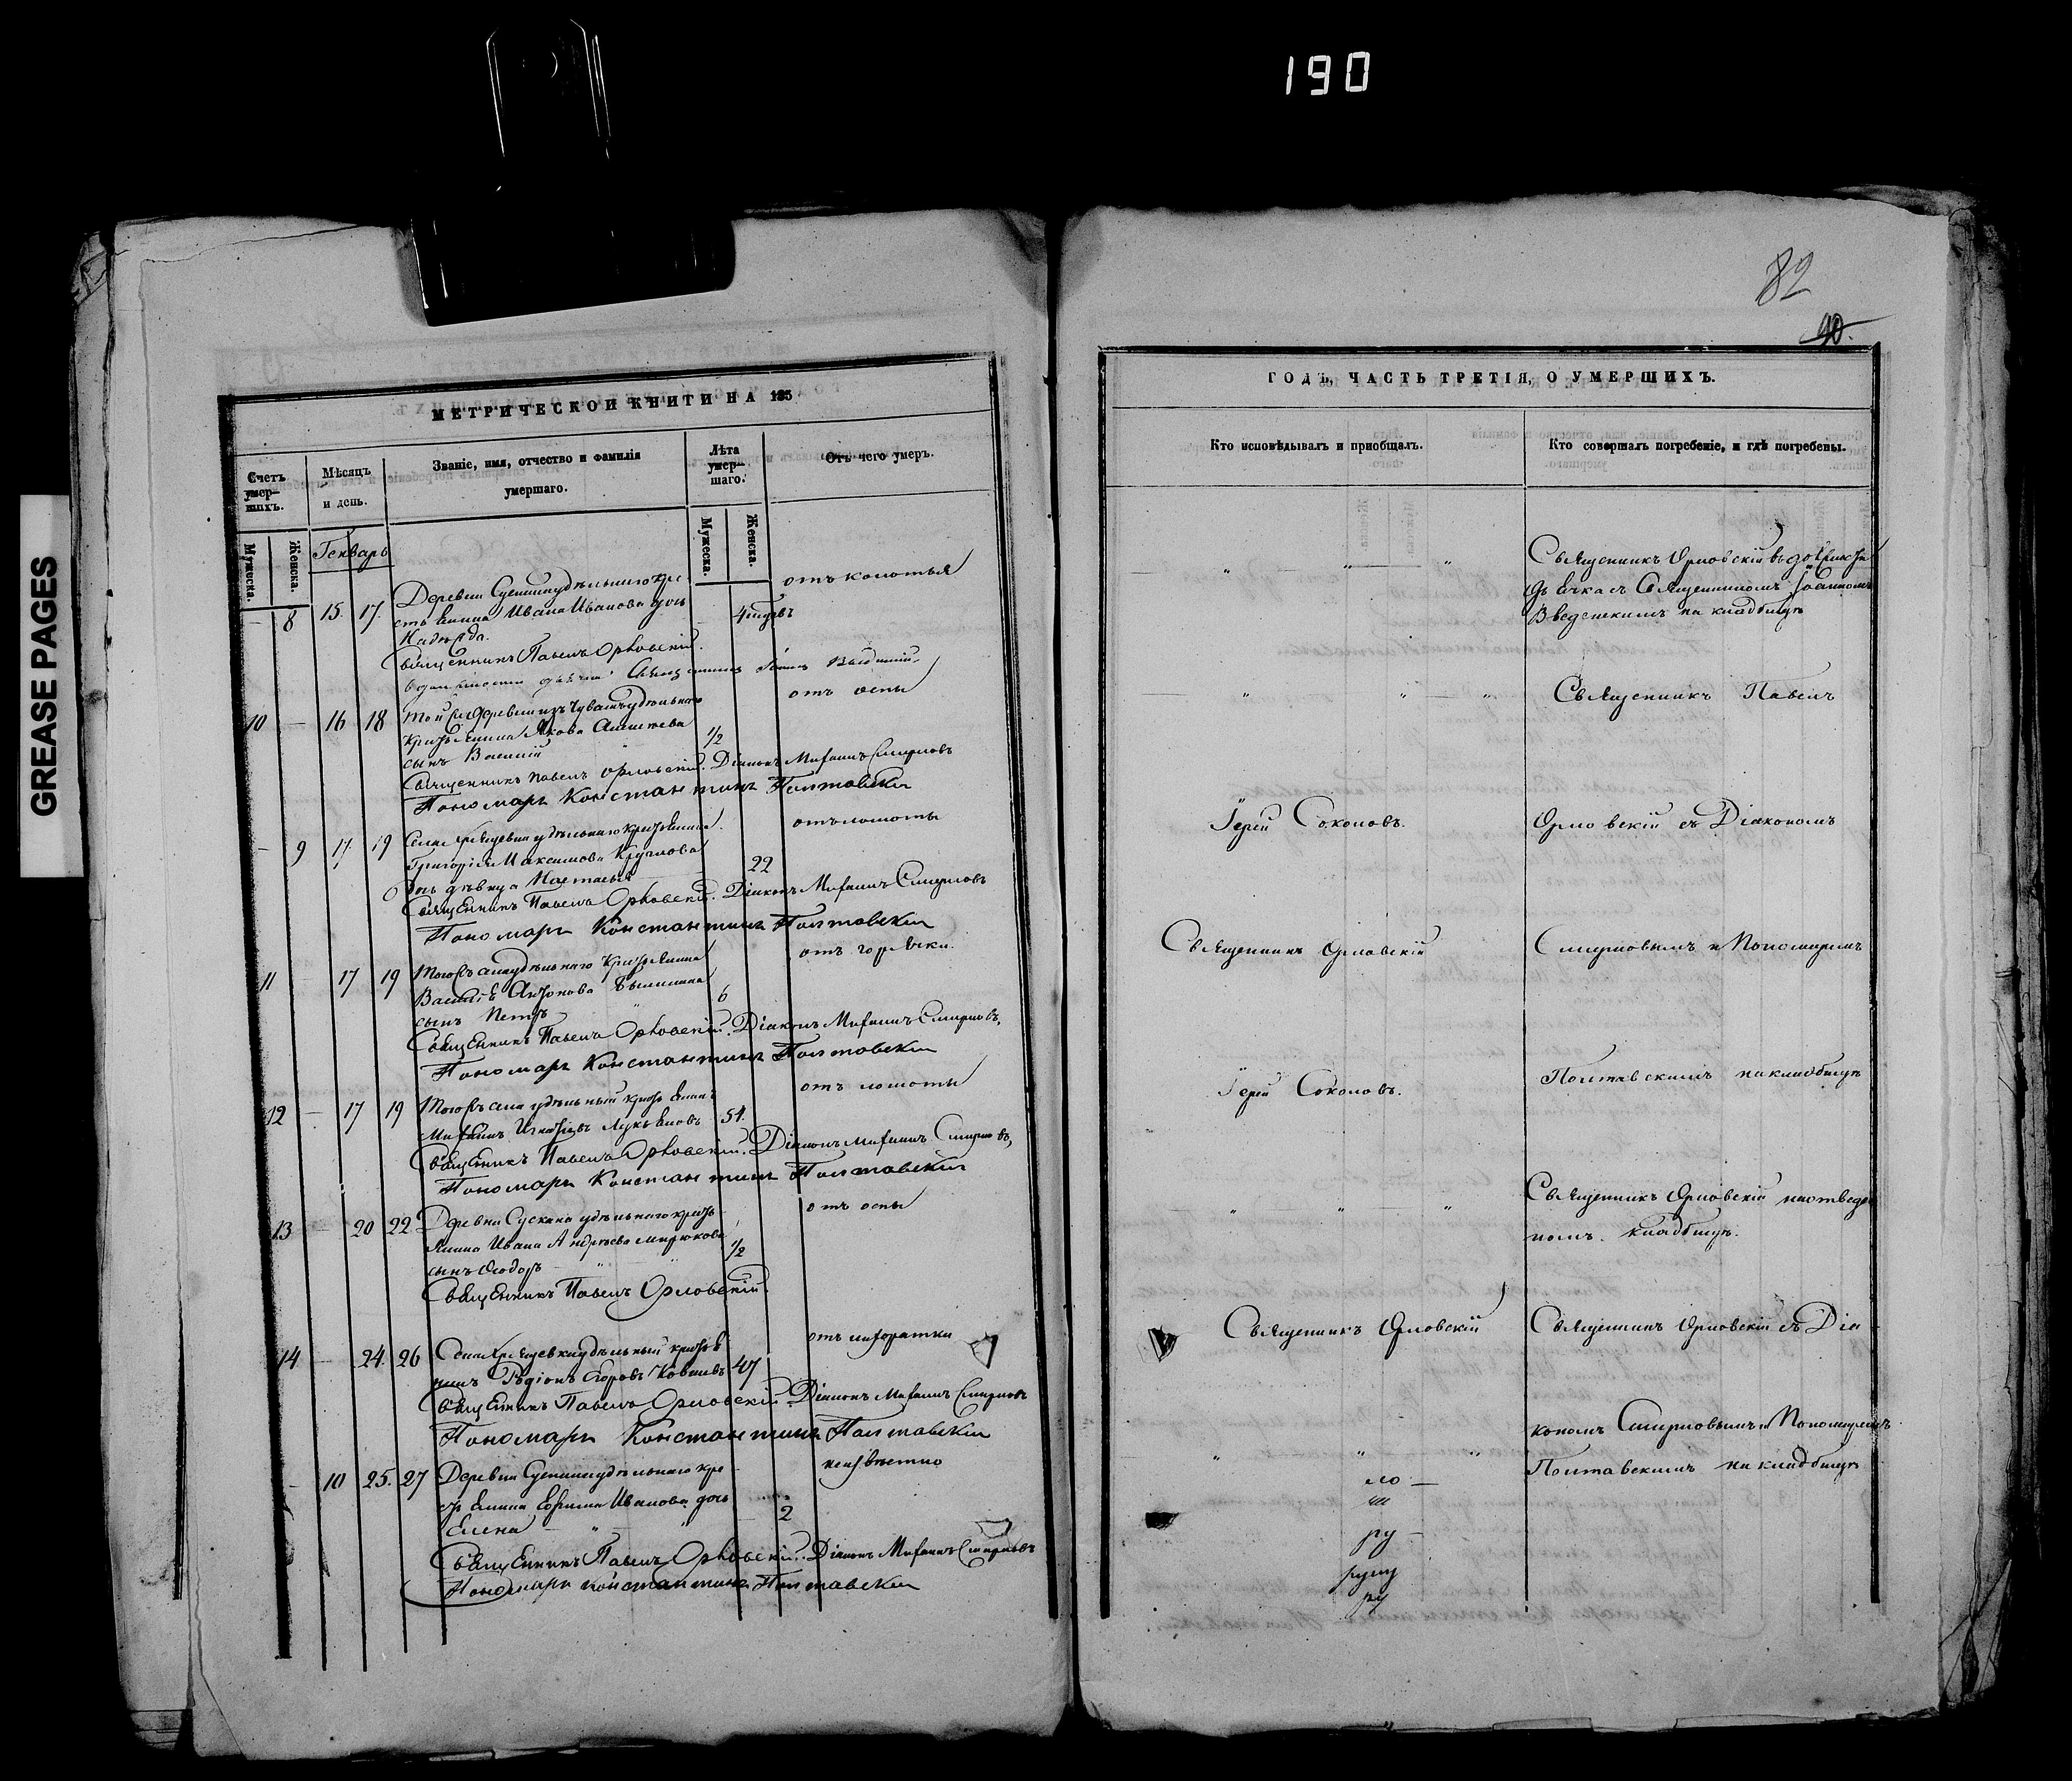 190
GREASE PAGES
82
90.
МЕТРИЧЕСКОЙ КНИГИ НА 185
Счетъ умер-
шихъ.
Мѣсяцъ
и день.
Званіе, имя, отчество и фамилія
умершаго.
Лѣта
умер-
шаго.
Отъ чего умеръ.
Мужеска.
Женска.
Генварь
Мужеска.
Женска.
8 15. 17. Деревни удѣльнаго кре
Ивана Иванова дочь
Надежда.
отъ колотья
Священникъ Павелъ Орловскій.
10 — 16 18 Той же деревни изъ Чувашъ удѣльнаго
Якова
сынъ Василій 1/2
отъ оспы
Священникъ Павелъ Орловскій. Діаконъ Михаилъ Смирновъ
Пономарь Константинъ Полтавскій
— 9 17 19 Села удѣльнаго
Григорія Максимова Круглова
дочь дѣвица Настасья 22
отъ ломоты
Священникъ Павелъ Орловскій. Діаконъ Михаилъ Смирновъ
Пономарь Константинъ Полтавскій
11 — 17 19 Тогожъ села удѣльнаго
сынъ Петръ 6
отъ горячки.
Священникъ Павелъ Орловскій. Діаконъ Михаилъ Смирновъ,
Пономарь Константинъ Полтавскій
12 — 17 19 Тогожъ села удѣльный
Михаилъ Игнатьевъ Лукьяновъ 54.
отъ ломоты
Священникъ Павелъ Орловскій. Діаконъ Михаилъ Смирновъ,
Пономарь Константинъ Полтавскій
13 — 20 22 Деревни Сускана удѣльнаго
Ивана Андреева Мирюкова
сынъ Ѳеодоръ 1/2
отъ оспы
Священникъ Павелъ Орловскій.
14 — 24. 26 Села удѣльный
Родіонъ Егоровъ 47
отъ лихоратки
Священникъ Павелъ Орловскій. Діаконъ Михаилъ Смирновъ
Пономарь Константинъ Полтавскій
— 10 25. 27 Деревни удѣльнаго кре
Ефима Иванова дочь
Елена 2
неизвѣстно
Священникъ Павелъ Орловскій. Діаконъ Михаилъ Смирновъ
Пономарь Константинъ Полтавскій
ГОДЪ, ЧАСТЬ ТРЕТІЯ, О УМЕРШИХЪ.
Кто исповѣдывалъ и пріобщалъ.
Кто совершалъ погребеніе, и гдѣ погребены.
Священникъ Орловскій въ
дьячка съ Священникомъ Іоанномъ
Введенскимъ на кладбищѣ
Священникъ Павелъ
Іерей Соколовъ.
Орловскій съ Діакономъ
Священникъ Орловскій
Смирновымъ и Пономаремъ
Іерей Соколовъ.
Полтавскимъ на кладбищѣ
Священникъ Орловскій на отведен
номъ. кладбищѣ.
Священникъ Орловскій
Священникъ Орловскій съ Діа
кономъ Смирновымъ и Пономаремъ
Полтавскимъ на кладбищѣ
ру
ру